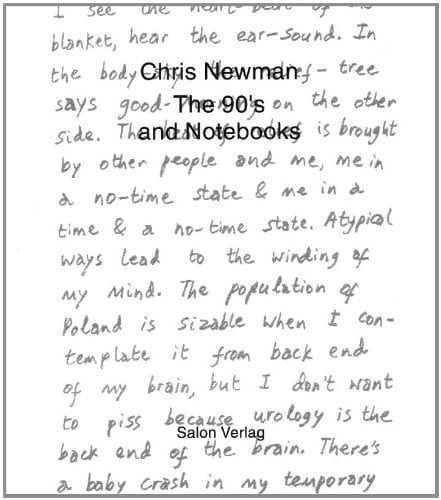 I see the heart-beat of
blanket, hear the ear-sound. In
the body the - tree
Chris Newman
says good-morning on the other
The 90's
side. The of is brought
and Notebooks
by other people and me, me in
a no-time state & me in a
time & a no-time state. Atypical
ways lead to the winding of
my mind. The population of
Poland is sizable when I con-
template it from back end
of my brain, but I don't want
to piss because urology is the
Salon Verlag
back end of the brain. There's
a baby crash in my temporary